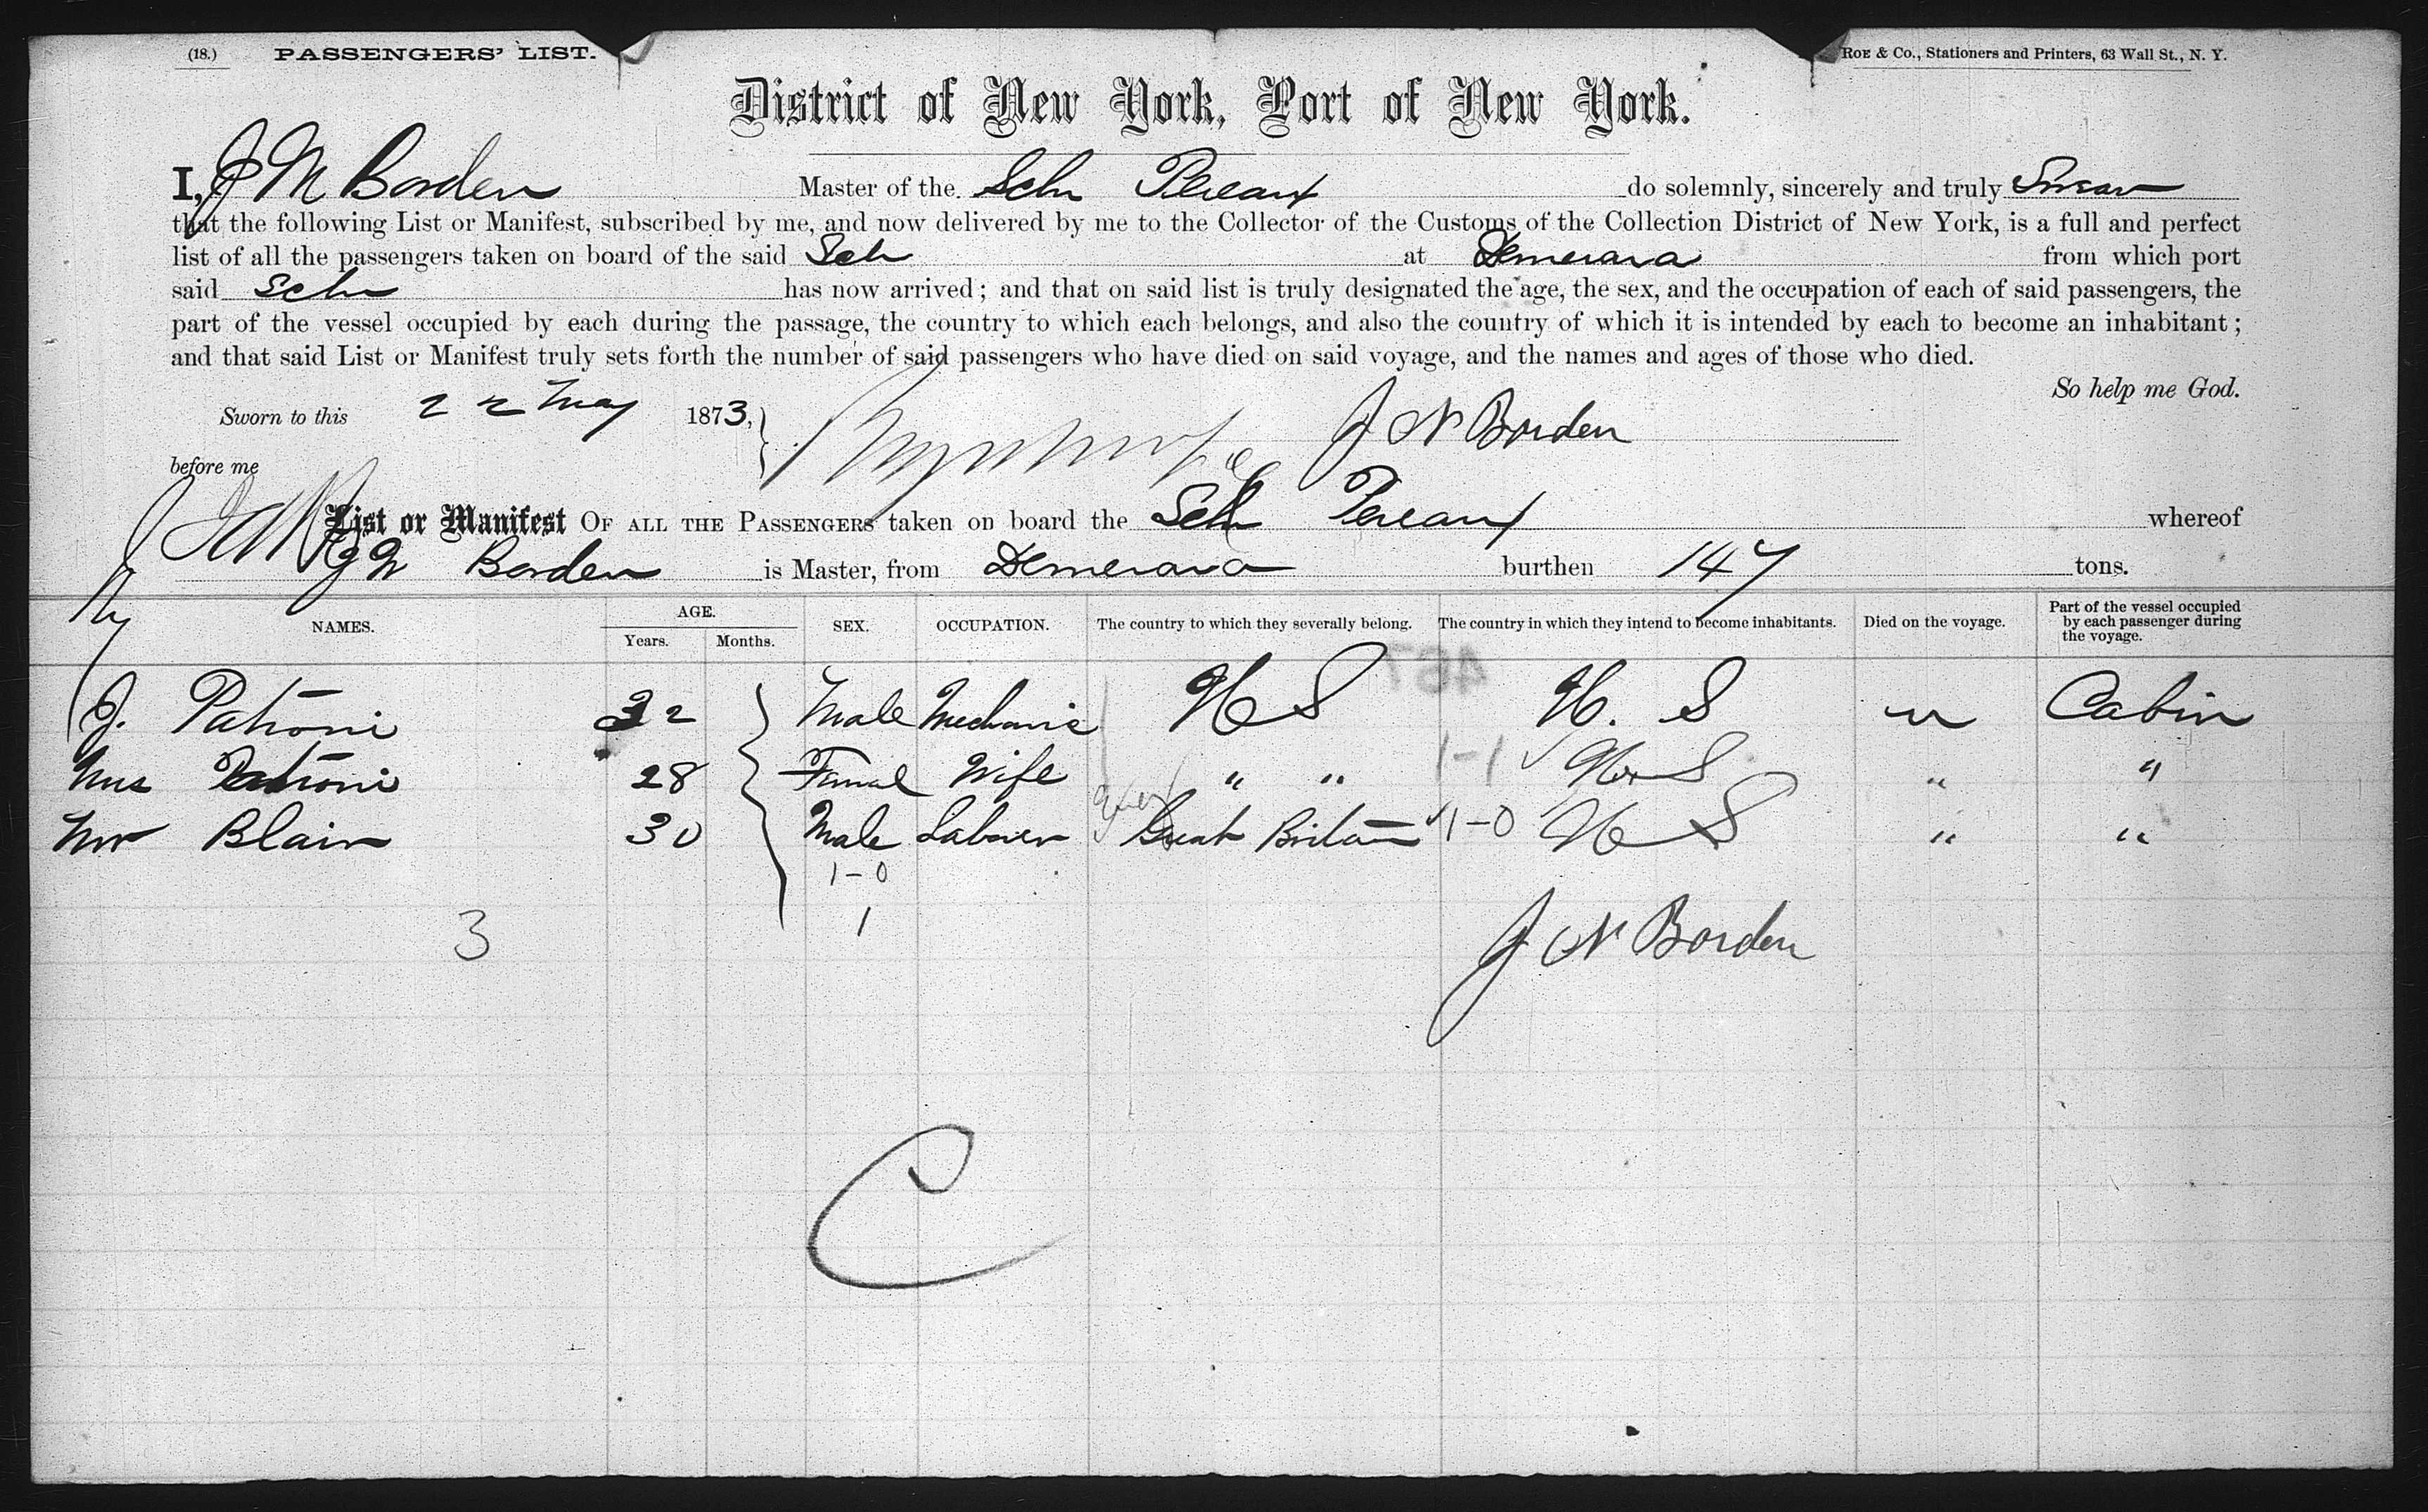 (18.) PASSENGERS' LIST. ROE & Co., Stationers and Printers, 63 Wall St., N. Y.
District of New York, Port of New York.
I, J M Borden Master of the Schr Pereaux do solemnly, sincerely and truly Swear
that the following List or Manifest, subscribed by me, and now delivered by me to the Collector of the Customs of the Collection District of New York, is a full and perfect
list of all the passengers taken on board of the said Sch at Demerara from which port
said Schr has now arrived; and that on said list is truly designated the age, the sex, and the occupation of each of said passengers, the
part of the vessel occupied by each during the passage, the country to which each belongs, and also the country of which it is intended by each to become an inhabitant;
and that said List or Manifest truly sets forth the number of said passengers who have died on said voyage, and the names and ages of those who died.
So help me God.
Sworn to this 22 May 1873, J N Borden
before me
List or Manifest OF ALL THE PASSENGERS taken on board the Sch Pereaux whereof
J N Borden is Master, from Demerara burthen 147 tons.
NAMES. AGE. Years. Months. SEX. OCCUPATION. The country to which they severally belong. The country in which they intend to become inhabitants. Died on the voyage. Part of the vessel occupied by each passenger during the voyage.
467
J. Patroni 32 Male Mechanic U S U. S Cabin
Mrs Patroni 28 Femal Wife " " 1-1 U S " "
Mr Blair 30 Male Laborer Great Britain 1-0 U S " "
1-0
3 1 J N Borden
C